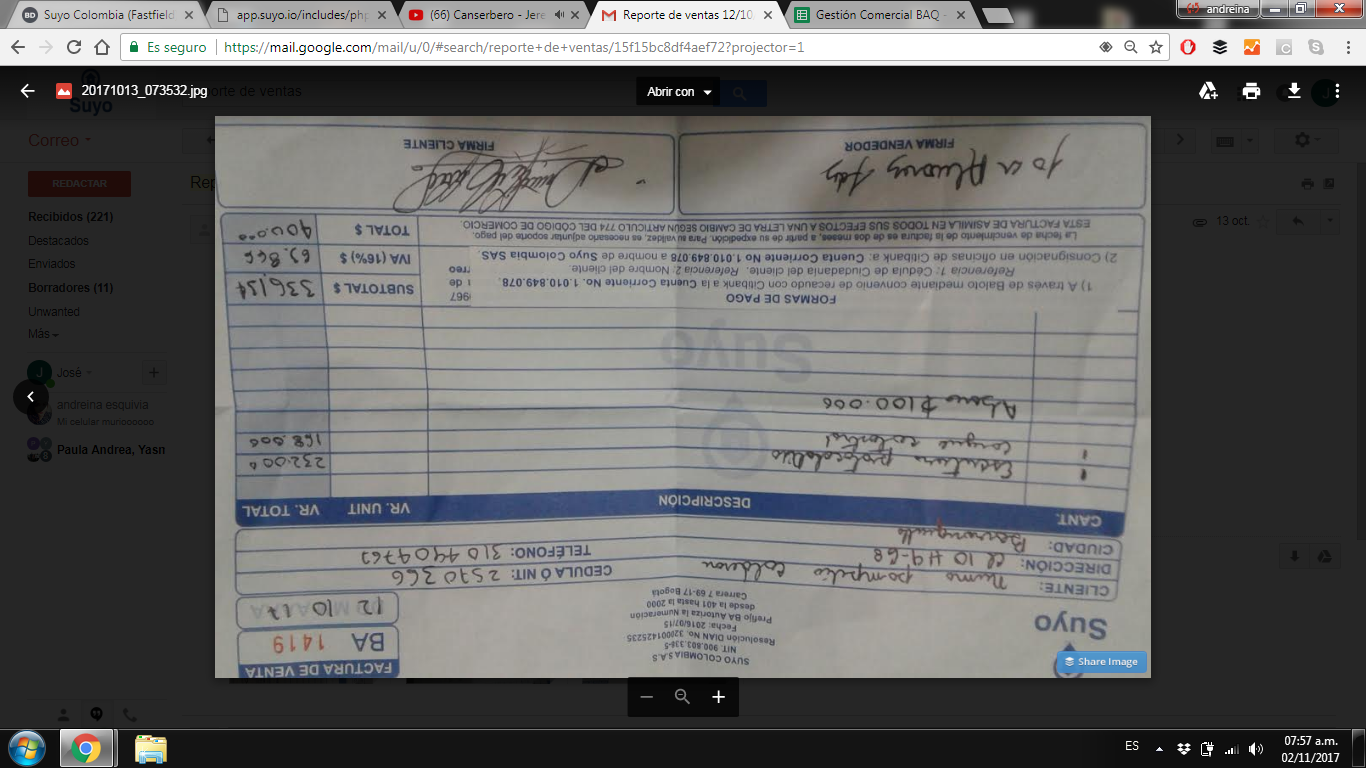 Suyo Colombia (Fastfield
app.suyo.io/includes/ph
(66) Canserbero - Jere
Reporte de ventas 12/10
Gestión Comercial BAQ -
andreina
Es seguro
https://mail.google.com/mail/u/0/#search/reporte+de+ventas/15f15bc8df4aef72?projector=1
20171013_073532.jpg
rte de ventas
Abrir con
Suyo
Correo
REDACTAR
Rep
13 oct.
Recibidos (221)
Destacados
Enviados
Borradores (11)
Unwanted
Más
José
andreina esquivia
Mi celular muriooooooo
Paula Andrea, Yasn
FACTURA DE VENTA
BA 1419
12 10 17
SUYO COLOMBIA S.A.S
NIT. 900.803.338-5
Resolución DIAN No. 320001425235
Fecha: 2016/07/15
Prefijo BA Autoriza la Numeración
desde la 401 hasta la 2000
Carrera 7 69-17 Bogotá
Suyo
CLIENTE: Numa pompilio calderon
CEDULA Ó NIT: 2570366
DIRECCIÓN: cl 10 #9-68
TELÉFONO: 310 4904763
CIUDAD: Barranquilla
CANT. DESCRIPCIÓN VR. UNIT VR. TOTAL
1 Escritura 232.000
1 168.000
Abono $100.000
Suyo
FORMAS DE PAGO
1) A través de Baloto mediante convenio de recaudo con Citibank a la Cuenta Corriente No. 1.010.849.078.
Referencia 1: Cédula de Ciudadanía del cliente. Referencia 2: Nombre del cliente.
2) Consignación en oficinas de Citibank a: Cuenta Corriente No 1.010.849.078 a nombre de Suyo Colombia SAS.
La fecha de vencimiento de la factura es de dos meses, a partir de su expedición. Para su validez, es necesario adjuntar soporte del pago.
ESTA FACTURA DE ASIMILA EN TODOS SUS EFECTOS A UNA LETRA DE CAMBIO SEGÚN ARTICULO 774 DEL CODIGO DE COMERCIO.
967
de
rreo
SUBTOTAL $ 336,134
IVA (16%) $ 63,866
TOTAL $ 400.000
FIRMA VENDEDOR
FIRMA CLIENTE
Share Image
ES
07:57 a.m.
02/11/2017